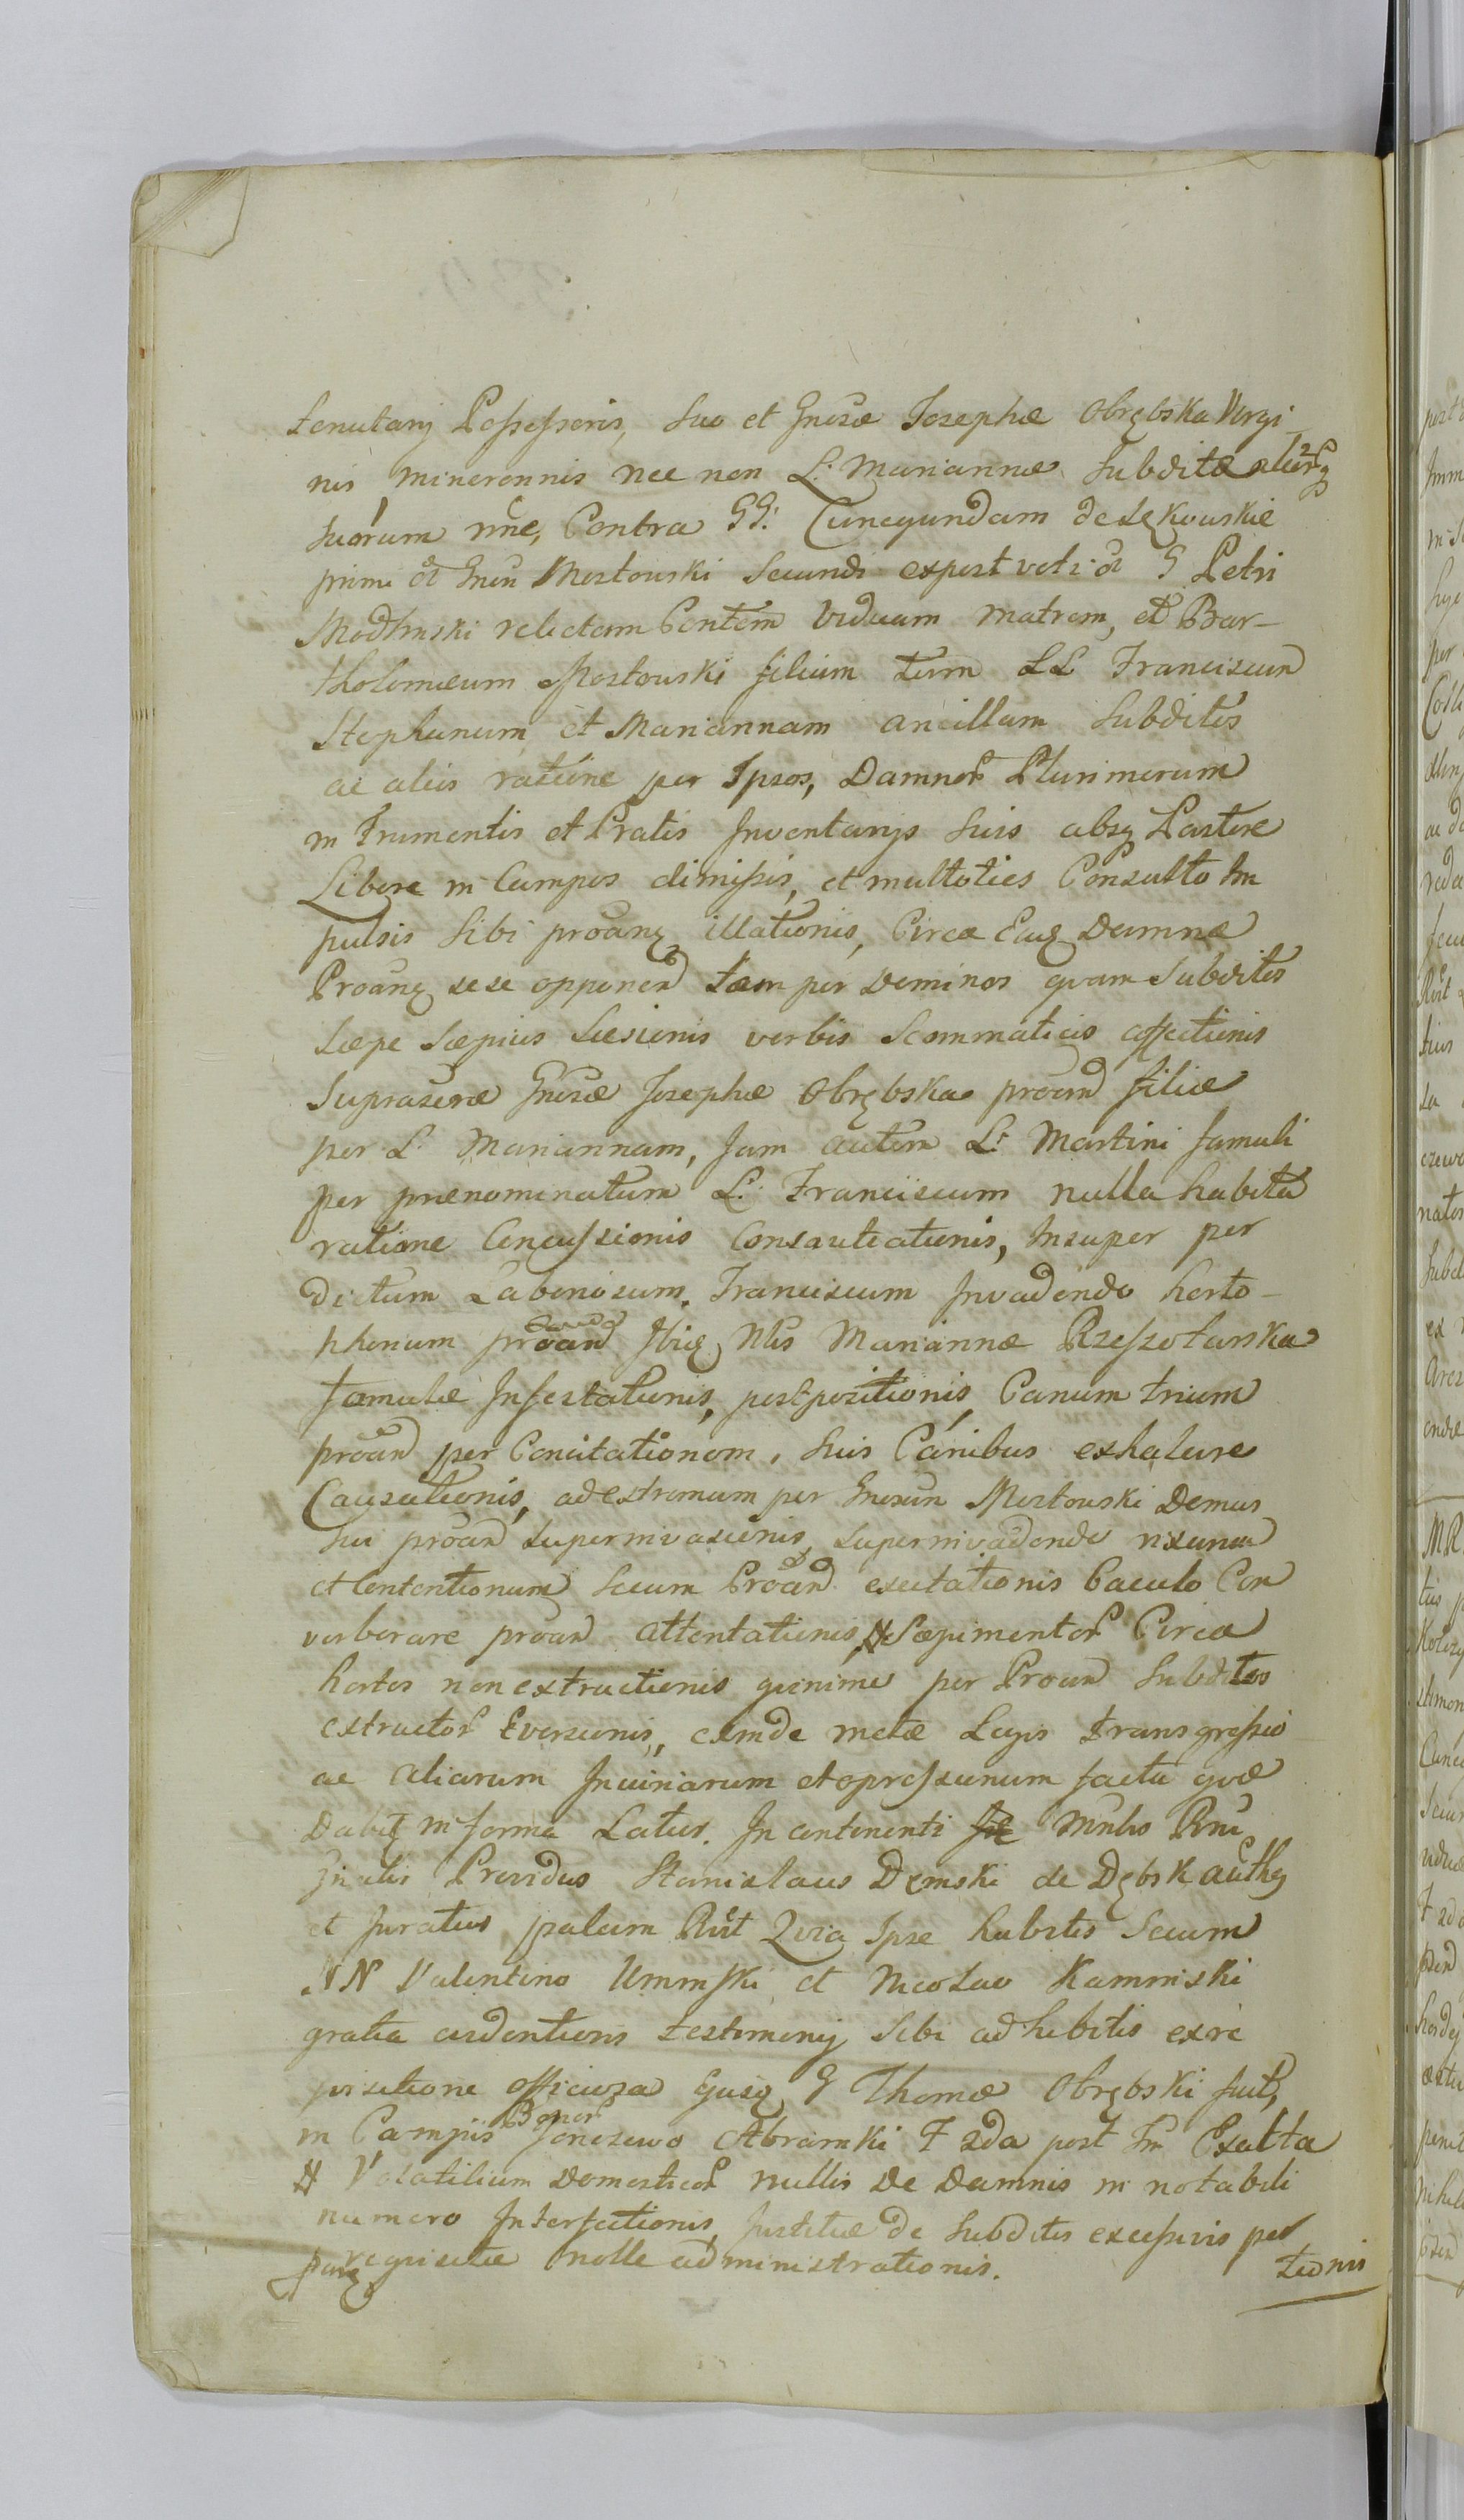 Tenutarij Possessoris, Suo et Gnosæ Josephæ Obrębska Virgi
nis minorennis nec non L: Mariannæ Subditæ aliorq
suorum nne, Contra GG: Cunegundam de Lękowskie
primi et Gnsu Mostowski Secundi expost voti et G Petri
Modlinski relictam Contem viduam matrem, et Bar-
tholomæum Mostowski filium tum LL Franciscum
Stephanum et Mariannam ancillam Subditos
ac alios ratione per Ipsos, Damnor Plurimorum
in Frumentis et Pratis Inventarijs Suis absq Pastore
Libere in Campos dimissis, et multoties Consulto Im
pulsis Sibi proanq illationis, Circa Eaq Damna
Proanq sese opponen tam per Dominos quam Subditos
Sæpe Sæpius Læsionis verbis Scommaticis affectionis
Suprascræ Gnosæ Josephæ Obrębska proand filiæ
per L. Mariannam, Jam autem L: Martini famuli
per prænominatum L: Franciscum nulla habita
ratione Concussionis Consauciationis, Insuper per
dictum Laboriosum Franciscum Invadendo horto-
phorum proand Ibiq Nlis Mariannæ Rzeszotarska
famulæ Infestationis, postpositionis Canum trium
proand per Concitationem, Suis Canibus exhalare
Causationis, ad extremum per Gnosum Mostowski Domus
Sui proand superinvasionis, superinvadendo rixarum
et Contentionum Secum Proand excitationis baculo Con
verberare proand attentationis, # Sæpimentor Circa
hortos non extructionis quinimo per Proand Subditos
extructor Eversionis, exinde metæ Legis transgressio
ac aliarum Iniuriarum et opressionum facta quæ
Dabit in forma Latius. In continenti Mnlis Rni
Gnalis Providus Stanislaus Dęmski de Dębsk authq
et Juratus palam Rlt Quia Ipse habitis Secum
NN Valentino Uminski et Nicolao Kaminski
gratia evidentioris testimonij Sibi adhibitis ex re
quisitione officiosa Gnsq G Thomæ Obrębski fuit,
in Campis Bonor Jonczewo Abramki F 2da post Fm Exalta
# Volatilium Domesticor nullis de Damnis in notabili
numero Interfectionis, Justitiæ de Subditis excessivis per
parq requisitæ nolle administrationis. tionis